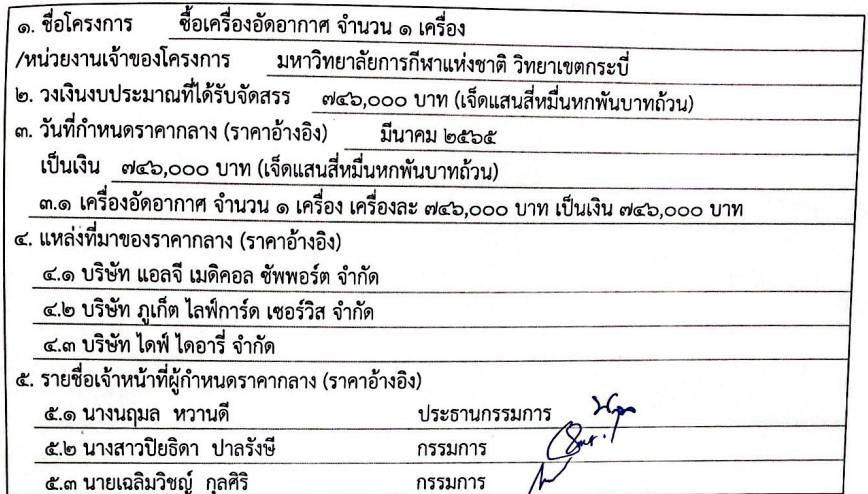 ๑. ชื่อโครงการ ซื้อเครื่องอัดอากาศ จำนวน ๑ เครื่อง
/หน่วยงานเจ้าของโครงการ มหาวิทยาลัยการกีฬาแห่งชาติ วิทยาเขตกระบี่
๒. วงเงินงบประมาณที่ได้รับจัดสรร ๗๔๖,๐๐๐ บาท (เจ็ดแสนสี่หมื่นหกพันบาทถ้วน)
๓. วันที่กำหนดราคากลาง (ราคาอ้างอิง) มีนาคม ๒๕๖๕
เป็นเงิน ๗๔๖,๐๐๐ บาท (เจ็ดแสนสี่หมื่นหกพันบาทถ้วน)
๓.๑ เครื่องอัดอากาศ จำนวน ๑ เครื่อง เครื่องละ ๗๔๖,๐๐๐ บาท เป็นเงิน ๗๔๖,๐๐๐ บาท
๔. แหล่งที่มาของราคากลาง (ราคาอ้างอิง)
๔.๑ บริษัท แอลจี เมดิคอล ซัพพอร์ต จำกัด
๔.๒ บริษัท ภูเก็ต ไลฟ์การ์ด เซอร์วิส จำกัด
๔.๓ บริษัท ไดฟ์ ไดอารี่ จำกัด
๕. รายชื่อเจ้าหน้าที่ผู้กำหนดราคากลาง (ราคาอ้างอิง)
๕.๑ นางนฤมล หวานดี ประธานกรรมการ
๕.๒ นางสาวปิยธิดา ปาลรังษี กรรมการ
๕.๓ นายเฉลิมวิชญ์ กุลศิริ กรรมการ